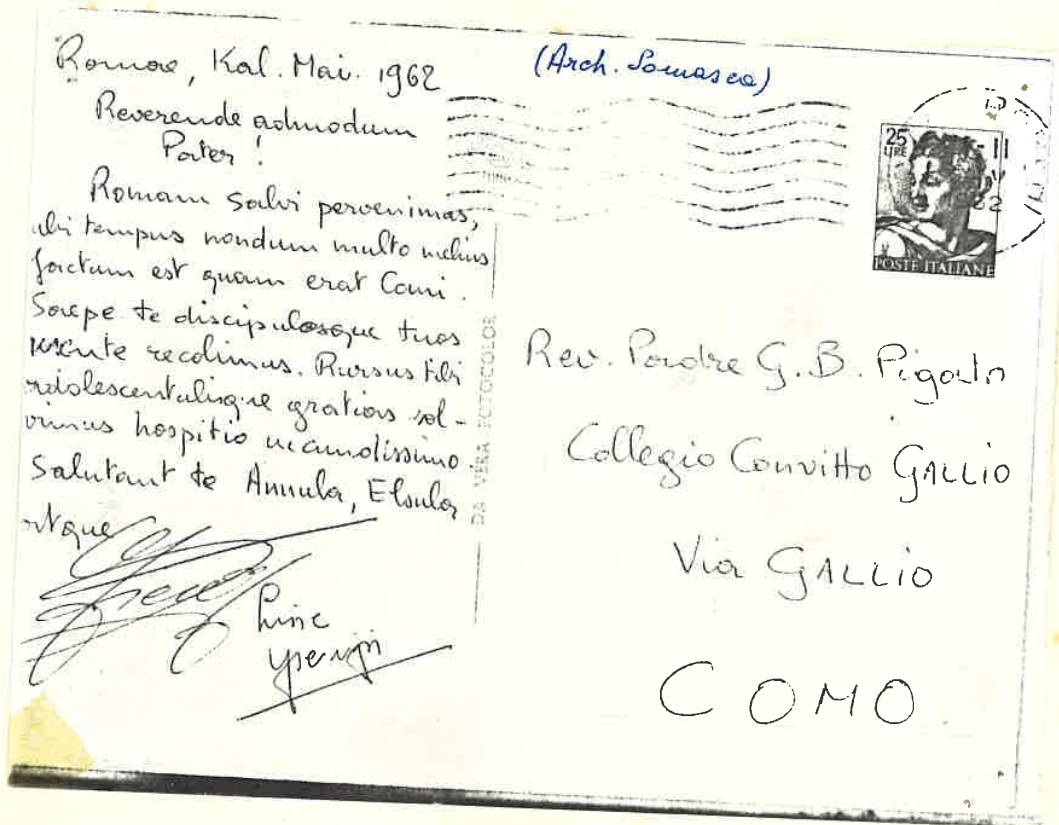 Romae, Kal. Mai. 1962
Reverende admodum
Pater!
Romam salvi pervenimus,
ubi tempus nondum multo melius
factum est quam erat Comi.
Saepe te discipulosque tuos
mente recolimus. Rursus tibi
adolescentulisque gratias sol-
vimus hospitio iucundissimo
Salutant te Annula, Elsula
atque
(Arch. Somasca)
25
LIRE
POSTE ITALIANE
DA VERA FOTOCOLOR
Rev. Padre G. B. Pigato
Collegio Convitto GALLIO
Via GALLIO
COMO